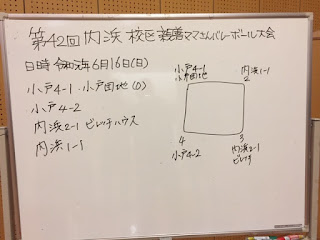 第42回 内浜 校区 親善ママさんバレーボール大会
日時 令和元年 6月16日(日)
小戸4-1・小戸団地(0)
小戸4-2
内浜2-1 ビレッチハウス
内浜1-1
小戸4-1
小戸団地
内浜1-1
2
4
3
小戸4-2
内浜2-1
ビレッチ